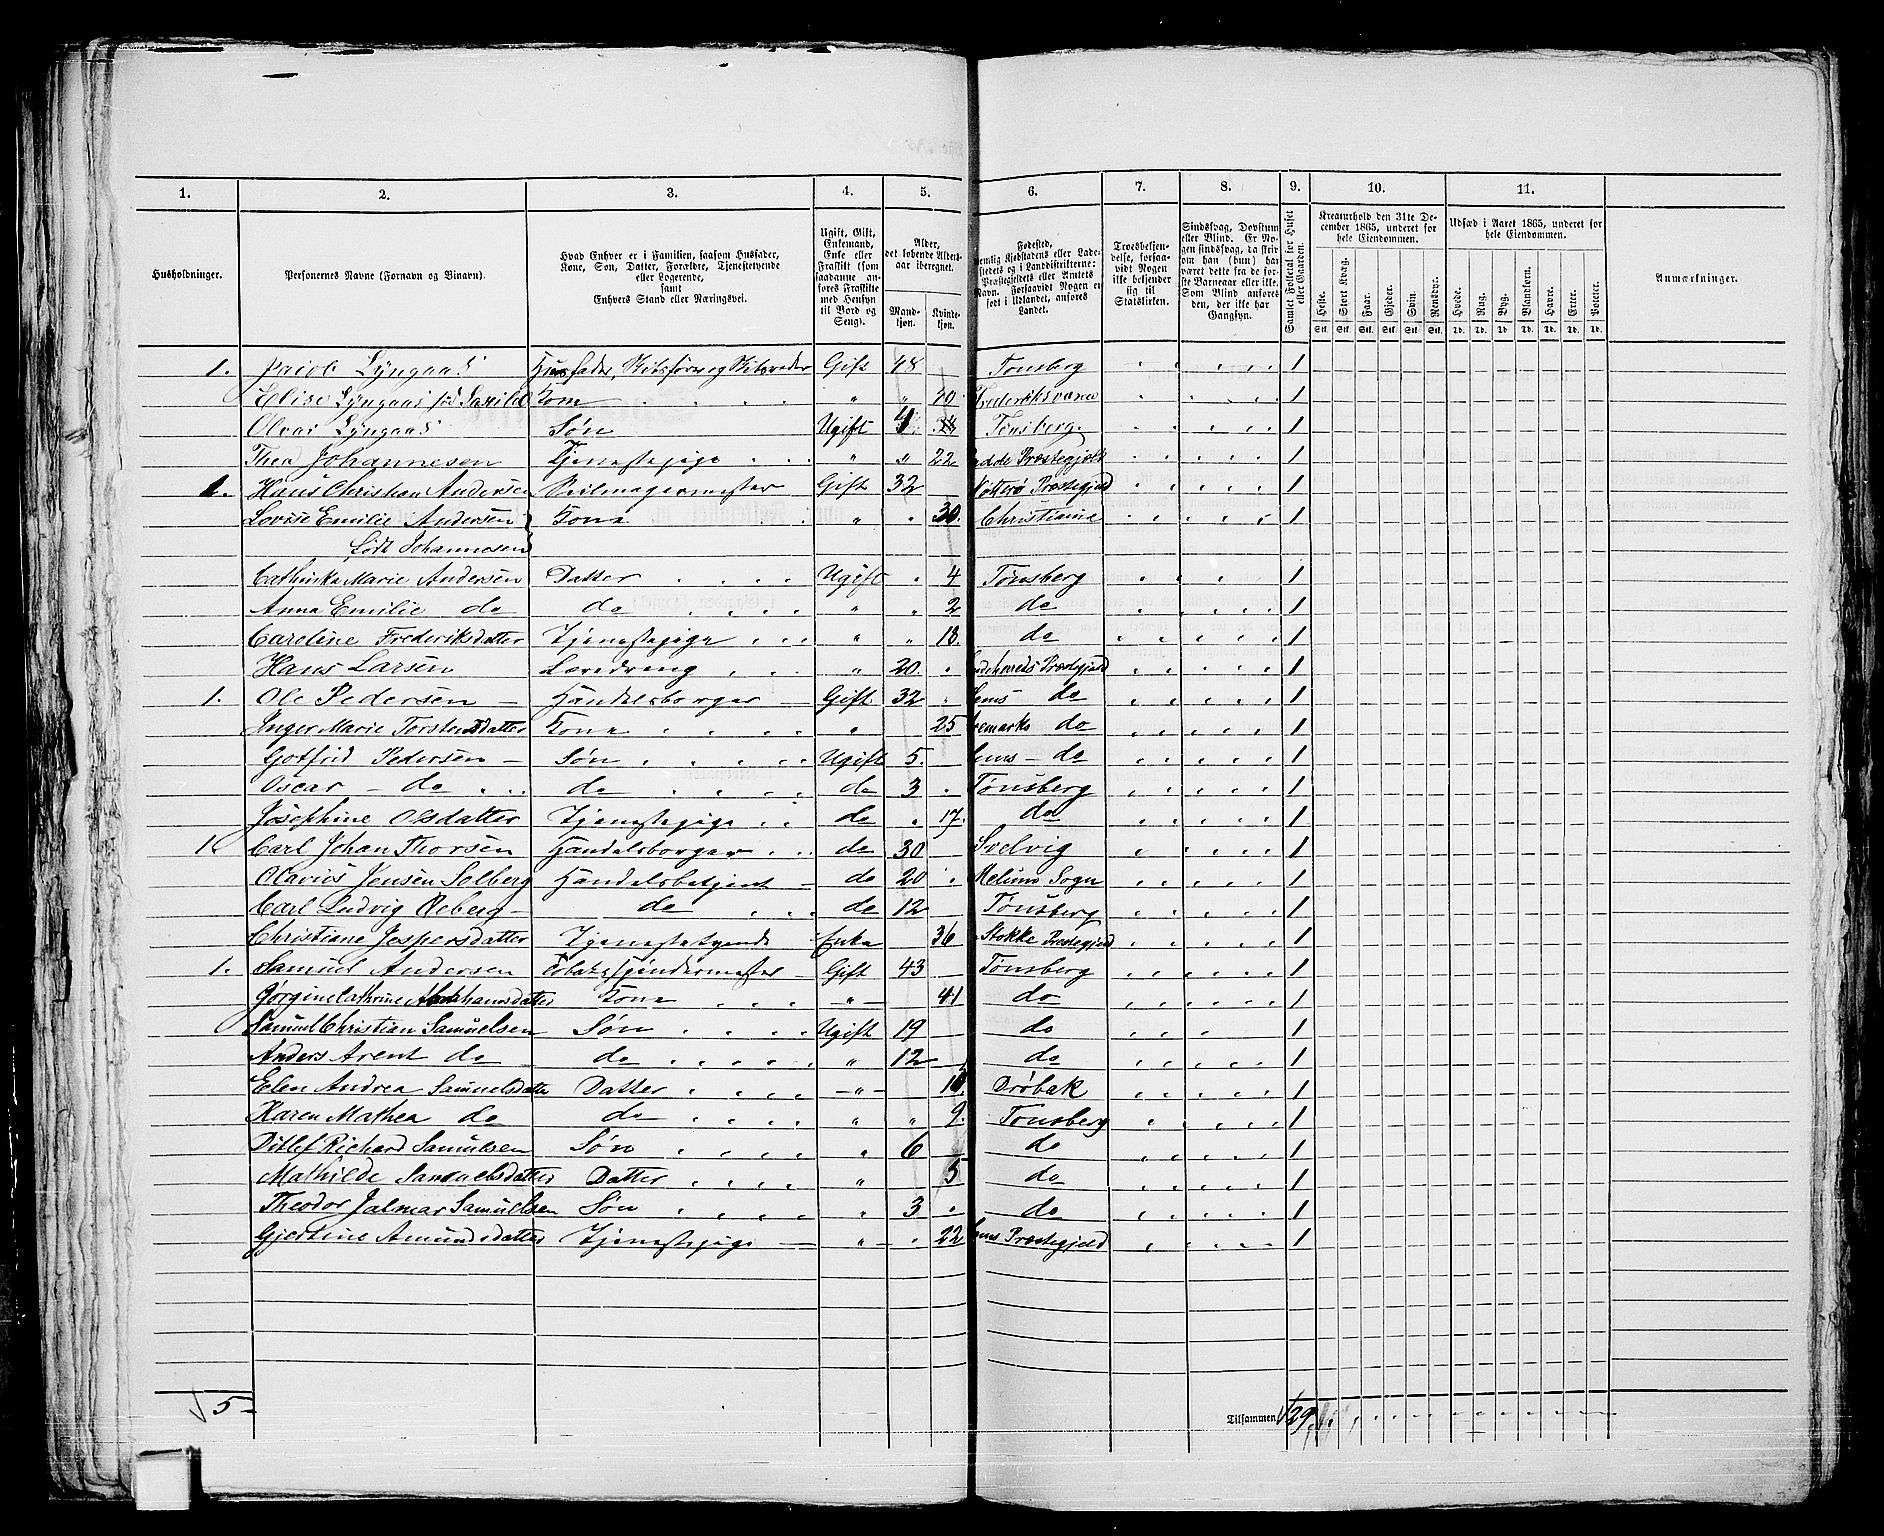 1. 2. 3. 4. 5. 6. 7. 8. 9. 10. 11.
Husholdninger.
Personernes Navne (Fornavn og Binavn).
Hvad Enhver er i Familien, saasom Husfader, Kone, Søn, Datter, Forældre, Tjenestetyende eller Logerende, samt Enhvers Stand eller Næringsvei.
Ugift, Gift, Enkemand, Enke eller Fraskilt (som saadanne anføres Fraskilte med Hensyn til Bord og Seng).
Alder, det løbende Aldersaar iberegnet.
Mandkjøn. Kvindekjøn.
Fødested,
Troesbekjendelse, forsaavidt Nogen ikke bekjender sig til Statskirken.
Sindssvag, Døvstum eller Blind.
Samlet Folketal for Huset eller Gaarden.
Kreaturhold den 31te December 1865, underet for hele Eiendommen.
Heste. Stort Kvæg. Faar. Gjeder. Svin. Rensdyr.
Udsæd i Aaret 1865, underet for hele Eiendommen.
Hvede. Rug. Byg. Blandkorn. Havre. Erter. Poteter.
Anmærkninger.
1. Jacob Lyngaas Husfader, Gift 48 Tønsberg 1
Elise Lyngaas fød Kone " " 30 Frederiksværn 1
Olvar Lyngaas Søn Ugift 4 Tønsberg. 1
Thea Johannesen Tjenestepige " " 22 Præstegjeld 1
1. Hans Christian Andersen Seilmagermester Gift 32 Nøtterø Præstegjeld 1
Lovise Emilie Andersen Kone " " 30. Christiania 1
født Johannesen
Cathinka Marie Andersen Datter Ugift " 4 Tønsberg 1
Anna Emilie do do " " 2 do 1
Caroline Frederiksdatter Tjenestepige " " 18. do 1
Hans Larsen Læredreng " 20. " Præstegjeld 1
1. Ole Pedersen — Handelsborger — Gift 32 " do 1
Inger Marie Torstensdatter Kone " 25 do 1
Gotfrid Pedersen — Søn Ugift 5. — do 1
Oscar — do do do 3 " Tønsberg 1
Josephine Olsdatter Tjenestepige do " 17. do 1
1. Carl Johan Thorsen Handelsborger do 30 Svelvig 1
Olavus Jensen Solberg Handelsbetjent — do 20 " Melums Sogn 1
Carl Ludvig Oeberg — do do 12 Tønsberg 1
Christiane Jespersdatter Tjenestetyende Enke 36 Stokke Præstegjeld 1
1. Samuel Andersen Tobaksspindermester — Gift 43 Tønsberg 1
Jørgine Cathrine Abrahamsdatter Kone —"— 41 do 1
Samuel Christian Samuelsen Søn Ugift 19 do 1
Anders Arent do do " 12 do 1
Elen Andrea Samuelsdatter Datter —"— Drøbak 1
Karen Mathea do do " " 9. Tønsberg 1
Ditlef Richard Samuelsen Søn " 6 do 1
Mathilde Samuelsdatter Datter " 5 do 1
Theodor Jalmar Samuelsen Søn " 3 " do 1
Gjertine Amundsdatter Tjenestepige — " — " 22 Præstegjeld 1
5 Tilsammen 29